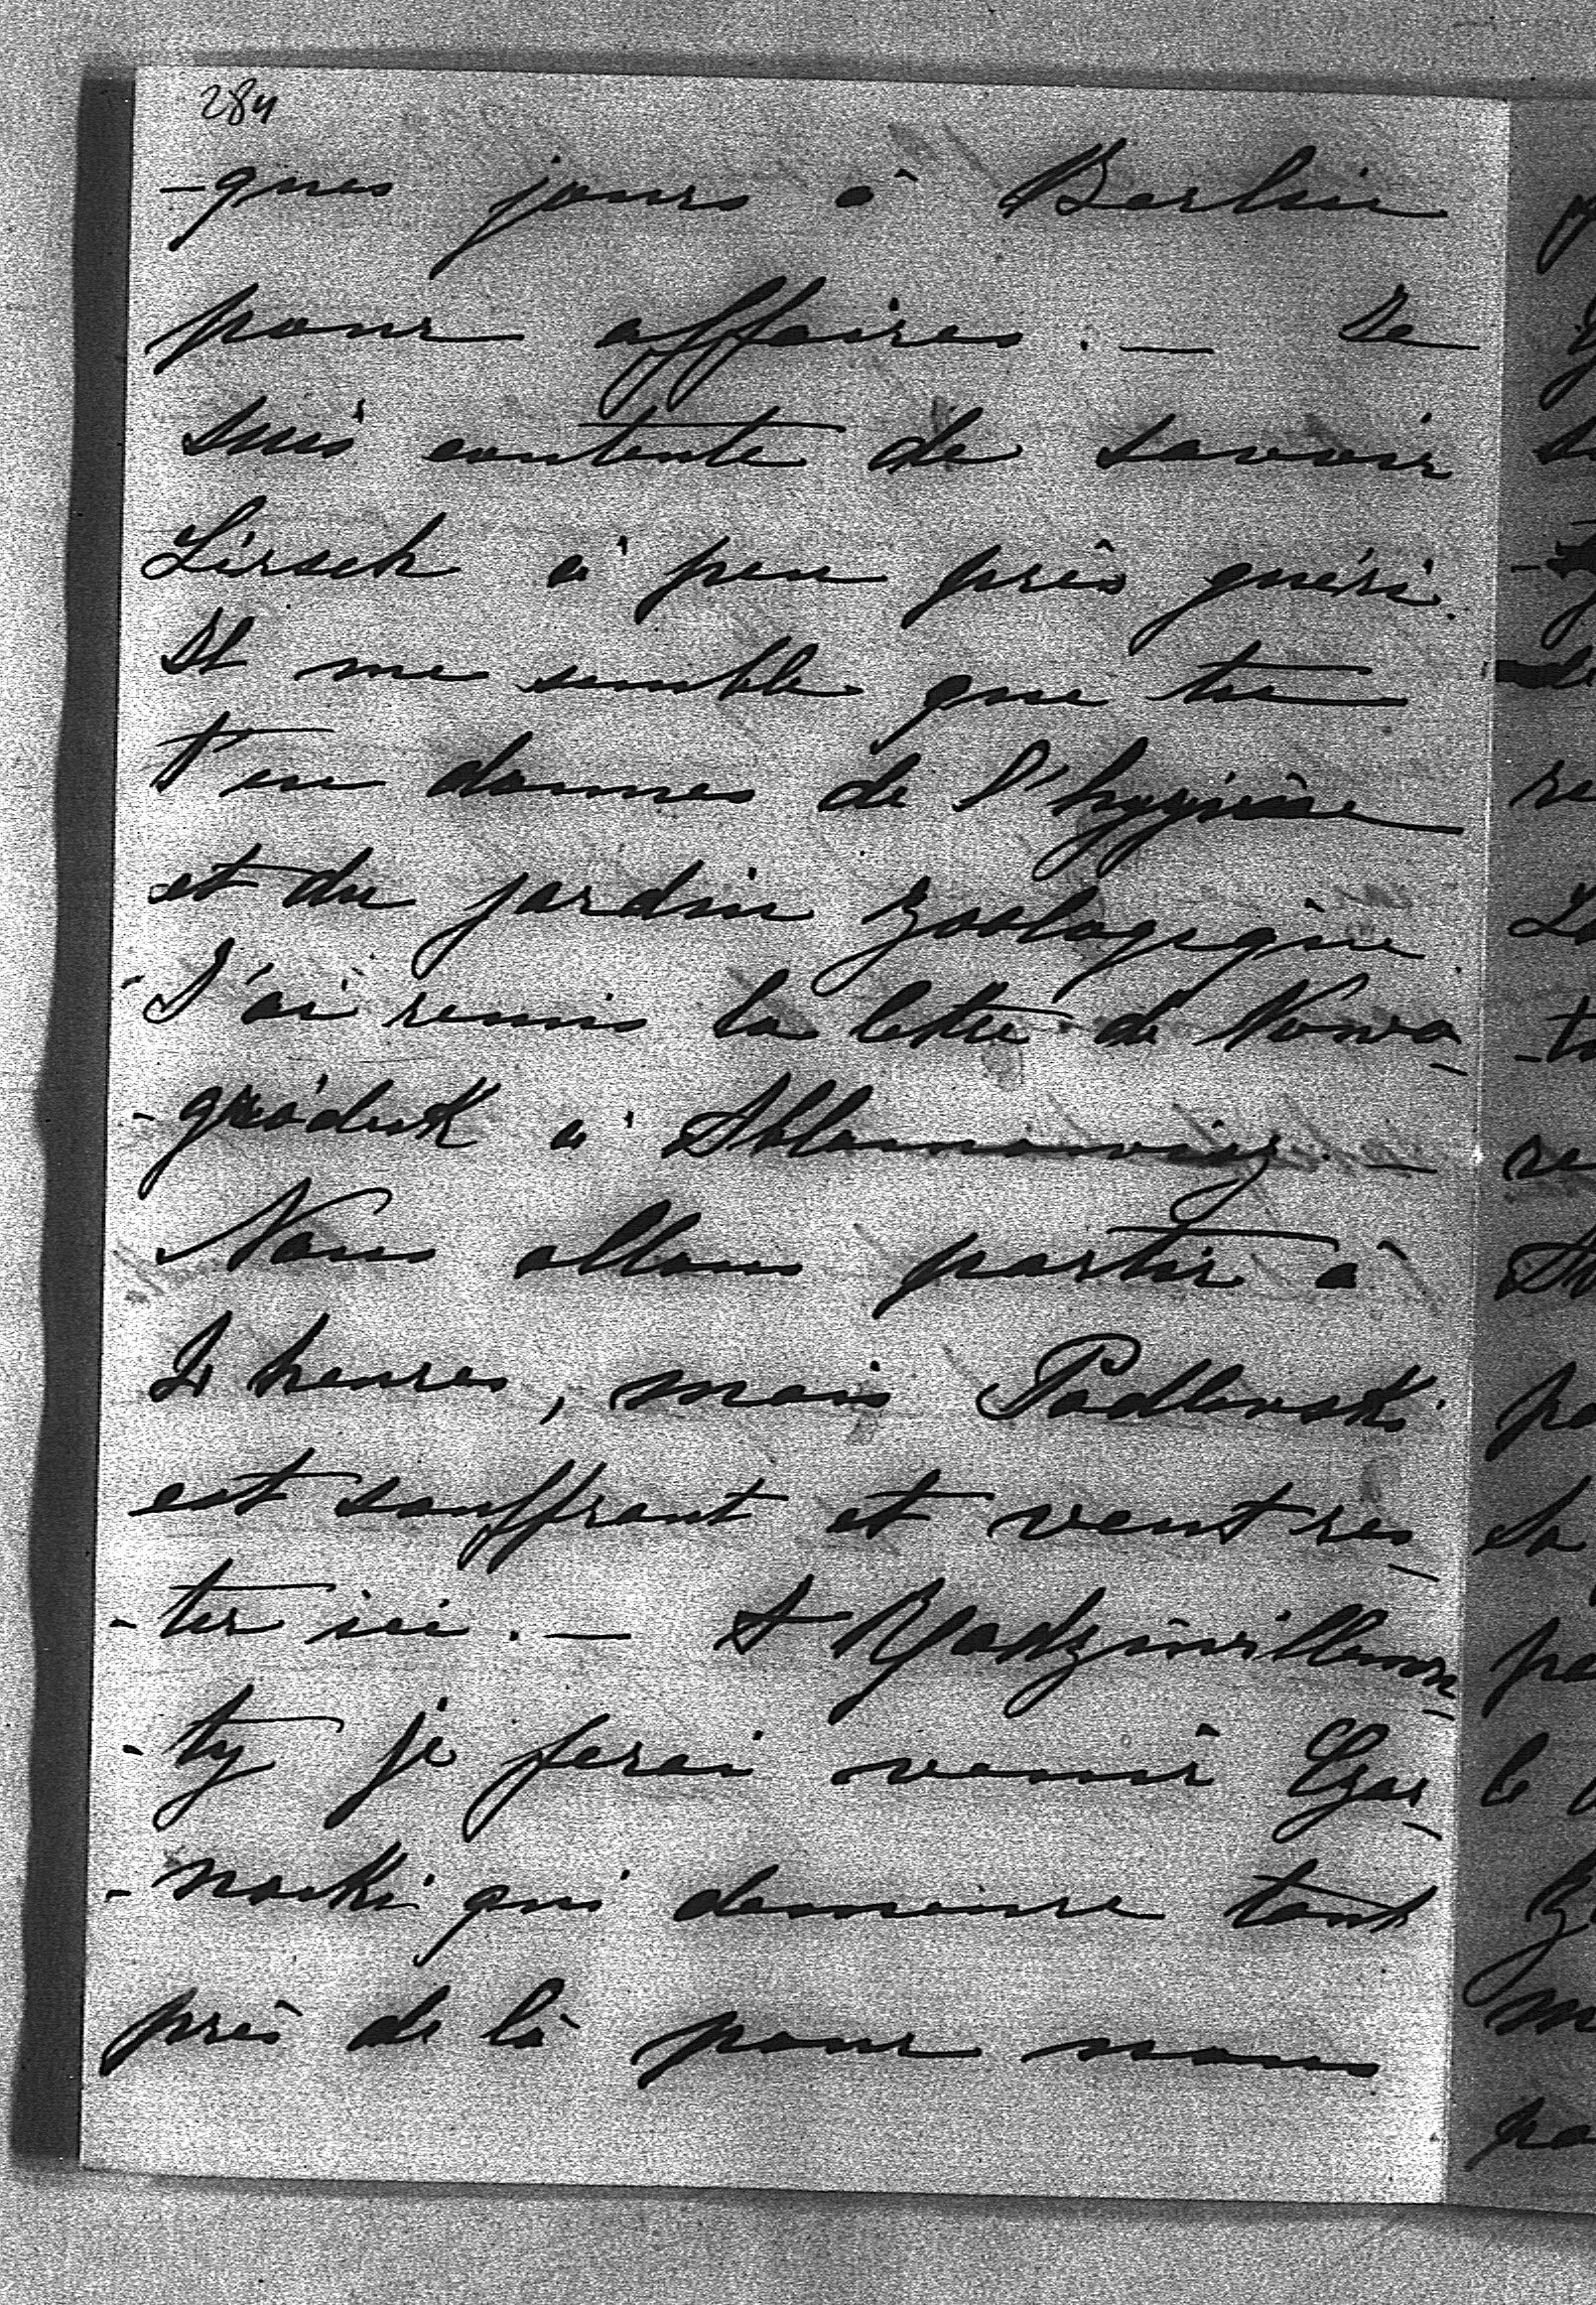 284
-ques jours à Berlin
pour affaires. — Je
suis contente de savoir
Lirsch à peu près guéri.
Il me semble que tu
t'en donnes de l'hygiène
et du jardin zoologique.
- J'ai remis la lettre de Nowo-
-gródek à Ablamowicz. —
Nous allons partir à
2 heures, mais Padlewski
est souffrant et veut res-
-ter ici. — A Radziwillmon-
-ty je ferai venir Czar-
-nocki qui demeure tout
près de là pour nous